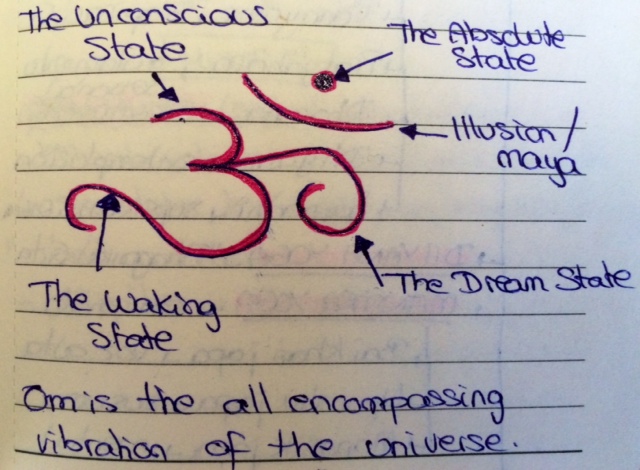 The Unconscious
State
The Absolute
State
Illusion/
maya
The Dream State
The Waking
State
Om is the all encompassing
vibration of the universe.